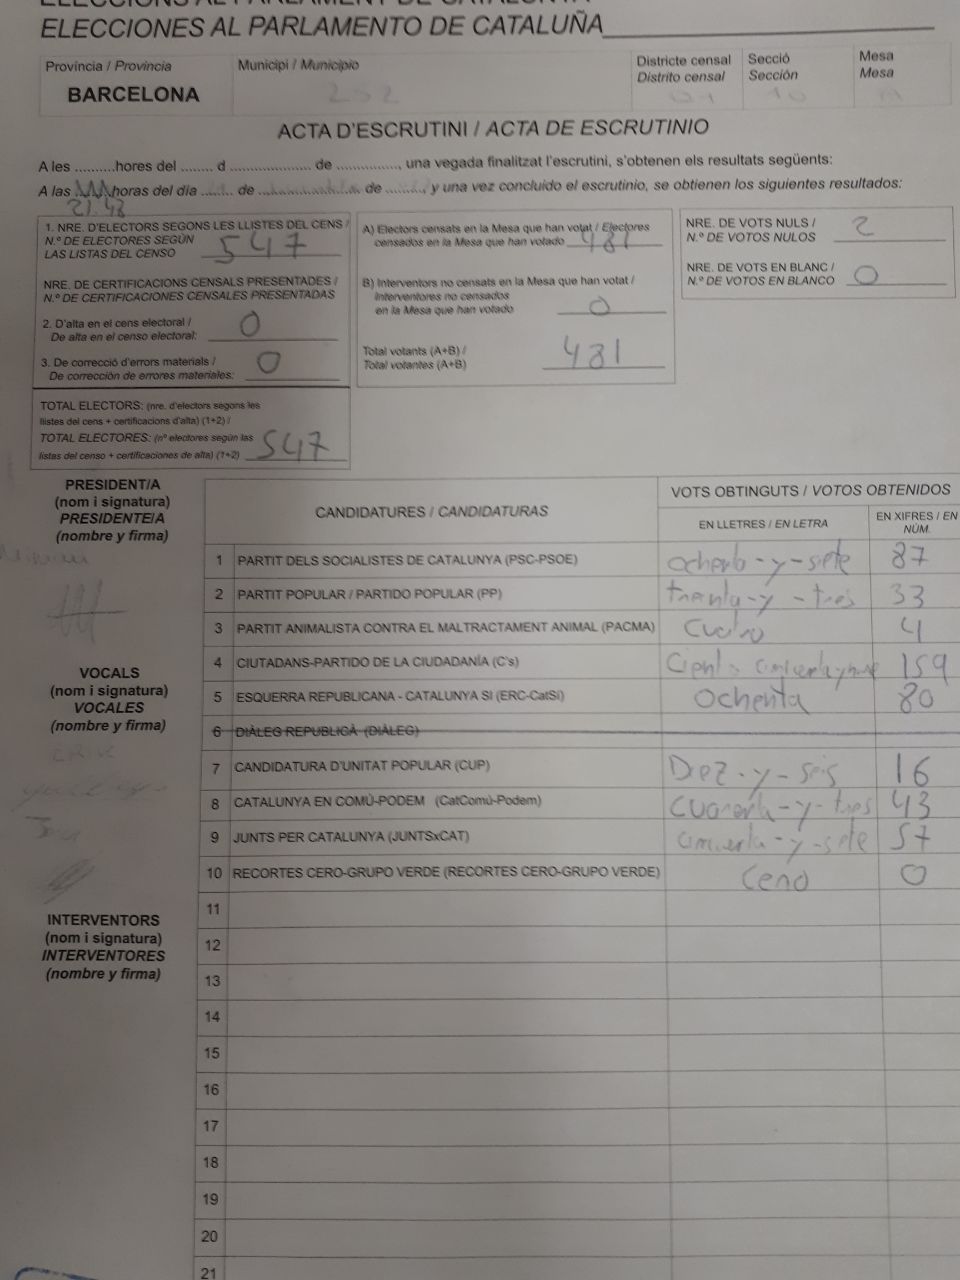 ELECCIONES AL PARLAMENTO DE CATALUÑA
Província / Provincia
BARCELONA
Municipi / Municipio
252
Districte censal
Distrito censal
01
Secció
Sección
10
Mesa
Mesa
ACTA D'ESCRUTINI / ACTA DE ESCRUTINIO
A les ..........hores del ........ d ..................... de ................, una vegada finalitzat l'escrutini, s'obtenen els resultats següents:
A las ..........horas del día ........ de ......................... de .........., y una vez concluido el escrutinio, se obtienen los siguientes resultados:
21:48
1. NRE. D'ELECTORS SEGONS LES LLISTES DEL CENS /
N.º DE ELECTORES SEGÚN
LAS LISTAS DEL CENSO 547
NRE. DE CERTIFICACIONS CENSALS PRESENTADES /
N.º DE CERTIFICACIONES CENSALES PRESENTADAS
2. D'alta en el cens electoral /
De alta en el censo electoral: 0
3. De correcció d'errors materials /
De corrección de errores materiales: 0
TOTAL ELECTORS: (nre. d'electors segons les
llistes del cens + certificacions d'alta) (1+2) /
TOTAL ELECTORES: (nº electores según las
listas del censo + certificaciones de alta) (1+2) 547
A) Electors censats en la Mesa que han votat / Electores
censados en la Mesa que han votado 481
B) Interventors no censats en la Mesa que han votat /
Interventores no censados
en la Mesa que han votado 0
Total votants (A+B) /
Total votantes (A+B) 481
NRE. DE VOTS NULS /
N.º DE VOTOS NULOS 2
NRE. DE VOTS EN BLANC /
N.º DE VOTOS EN BLANCO 0
PRESIDENT/A
(nom i signatura)
PRESIDENTE/A
(nombre y firma)
VOCALS
(nom i signatura)
VOCALES
(nombre y firma)
INTERVENTORS
(nom i signatura)
INTERVENTORES
(nombre y firma)
CANDIDATURES / CANDIDATURAS
VOTS OBTINGUTS / VOTOS OBTENIDOS
EN LLETRES / EN LETRA
EN XIFRES / EN
NÚM.
1 PARTIT DELS SOCIALISTES DE CATALUNYA (PSC-PSOE) ochenta-y-siete 87
2 PARTIT POPULAR / PARTIDO POPULAR (PP) treinta-y-tres 33
3 PARTIT ANIMALISTA CONTRA EL MALTRACTAMENT ANIMAL (PACMA) cuatro 4
4 CIUTADANS-PARTIDO DE LA CIUDADANÍA (C's) 159
5 ESQUERRA REPUBLICANA - CATALUNYA SI (ERC-CatSí) Ochenta 80
6 DIÀLEG REPUBLICÀ (DIÀLEG)
7 CANDIDATURA D'UNITAT POPULAR (CUP) Diez-y-seis 16
8 CATALUNYA EN COMÚ-PODEM (CatComú-Podem) cuarenta-y-tres 43
9 JUNTS PER CATALUNYA (JUNTSxCAT) cincuenta-y-siete 57
10 RECORTES CERO-GRUPO VERDE (RECORTES CERO-GRUPO VERDE) Cero 0
11
12
13
14
15
16
17
18
19
20
21